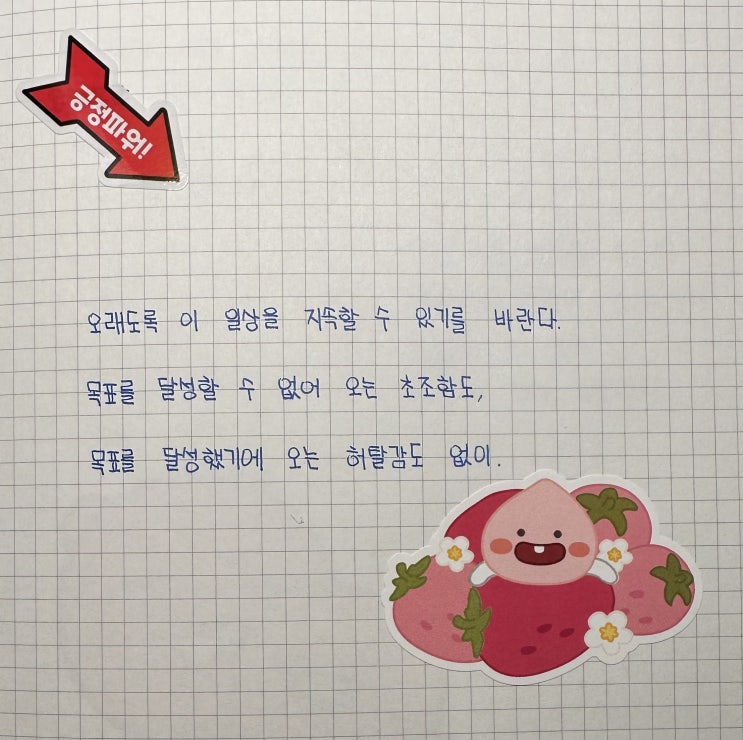 긍정파워!
오래도록 이 일상을 지속할 수 있기를 바란다.
목표를 달성할 수 없어 오는 초조함도,
목표를 달성했기에 오는 허탈감도 없이.